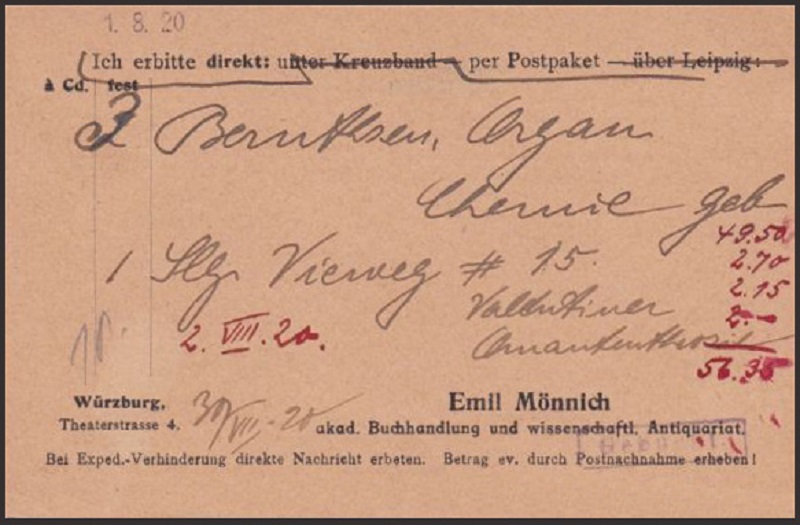 1. 8. 20
Ich erbitte direkt: unter Kreuzband — per Postpaket — über Leipzig:
à Cd. fest
3 Bernthsen, Organ
Chemie geb
49.50
1 Slg. Vieweg # 15.
2.70
2.15
Valentiner
2.—
2. VIII. 20.
56.35
Würzburg,
Theaterstrasse 4.
30/VII.-20
Emil Mönnich
akad. Buchhandlung und wissenschaftl. Antiquariat.
Bei Exped.-Verhinderung direkte Nachricht erbeten. Betrag ev. durch Postnachnahme erheben!